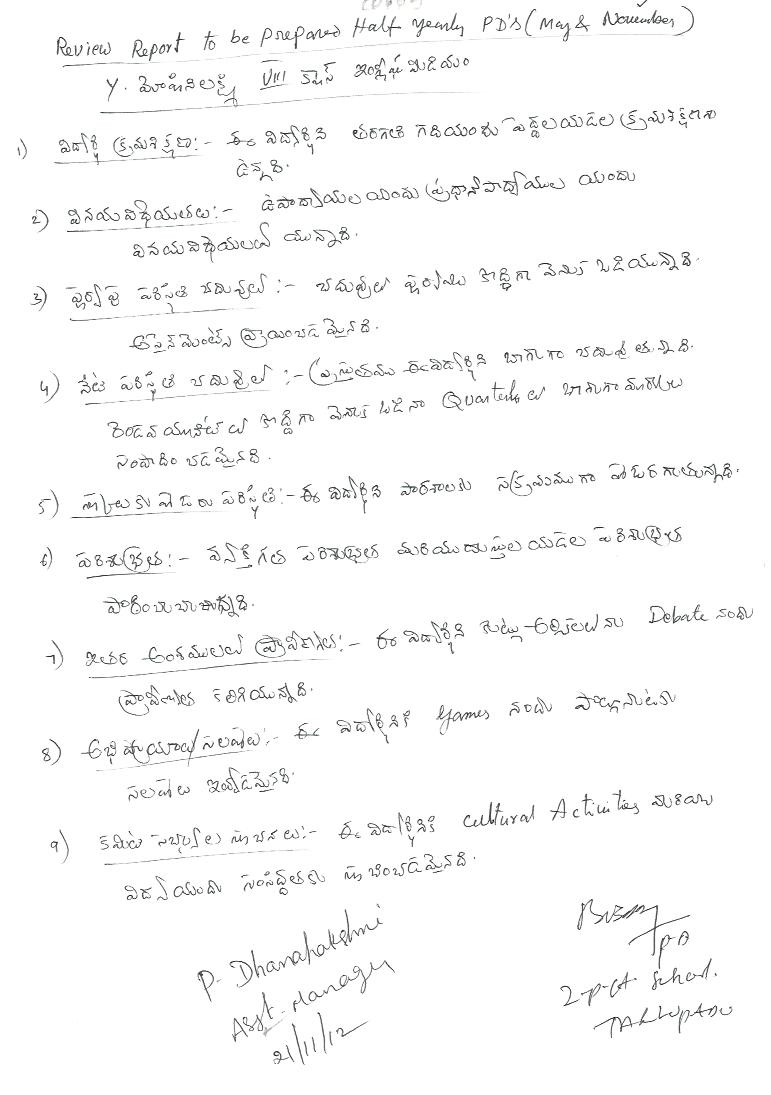 Review Report to be prepared Half yearly PD's (May & November)
Y. మోహినిలక్ష్మి VIII క్లాస్ ఇంగ్లీషు మీడియం
1) విద్యార్థి క్రమశిక్షణ:- ఈ విద్యార్థిని తరగతి గదియందు పెద్దలయడల క్రమశిక్షణగా
ఉన్నది.
2) వినయవిధేయతలు:- ఉపాధ్యాయుల యందు ప్రధానోపాధ్యాయుల యందు
వినయవిధేయలతో యున్నాది.
3) పూర్వపు పరిస్థితి చదువులు:- చదువులు పూర్వము కొద్దిగా వెనుక బడియున్నాది.
అసైన్ మెంట్స్ వ్రాయించడమైనది.
4) నేటి పరిస్థితి చదువులు:- ప్రస్తుతము ఈ విద్యార్థిని బాగుగా చదువుతున్నాది.
రెండవ యూనిట్ లు కొద్దిగా వెనుక బడినా Quarterly లు బాగుగా మార్కులు
సంపాదించడమైనది.
5) స్కూలుకు హాజరు పరిస్థితి:- ఈ విద్యార్థిని పాఠశాలకు సక్రమముగా హాజరగుతున్నాది.
6) పరిశుభ్రత:- వ్యక్తిగత పరిశుభ్రత మరియు దుస్తుల యడల పరిశుభ్రత
పాటించుచున్నది.
7) ఇతర అంశములలో ప్రావీణ్యత:- ఈ విద్యార్థిని Debate నందు
ప్రావీణ్యత కలిగియున్నాది.
8) అభిప్రాయాలు/సలహాలు:- ఈ విద్యార్థినికి Games నందు పాల్గొనుటకు
సలహాలు ఇవ్వడమైనది.
9) కమిటీ సభ్యుల సూచనలు:- ఈ విద్యార్థినికి cultural Activities మరియు
విద్యయందు సంసిద్ధతకు సూచించడమైనది.
P. Dhanalakshmi
Asst. Manager
21/11/12
PO
Z.P.G School.
TALLUPADU